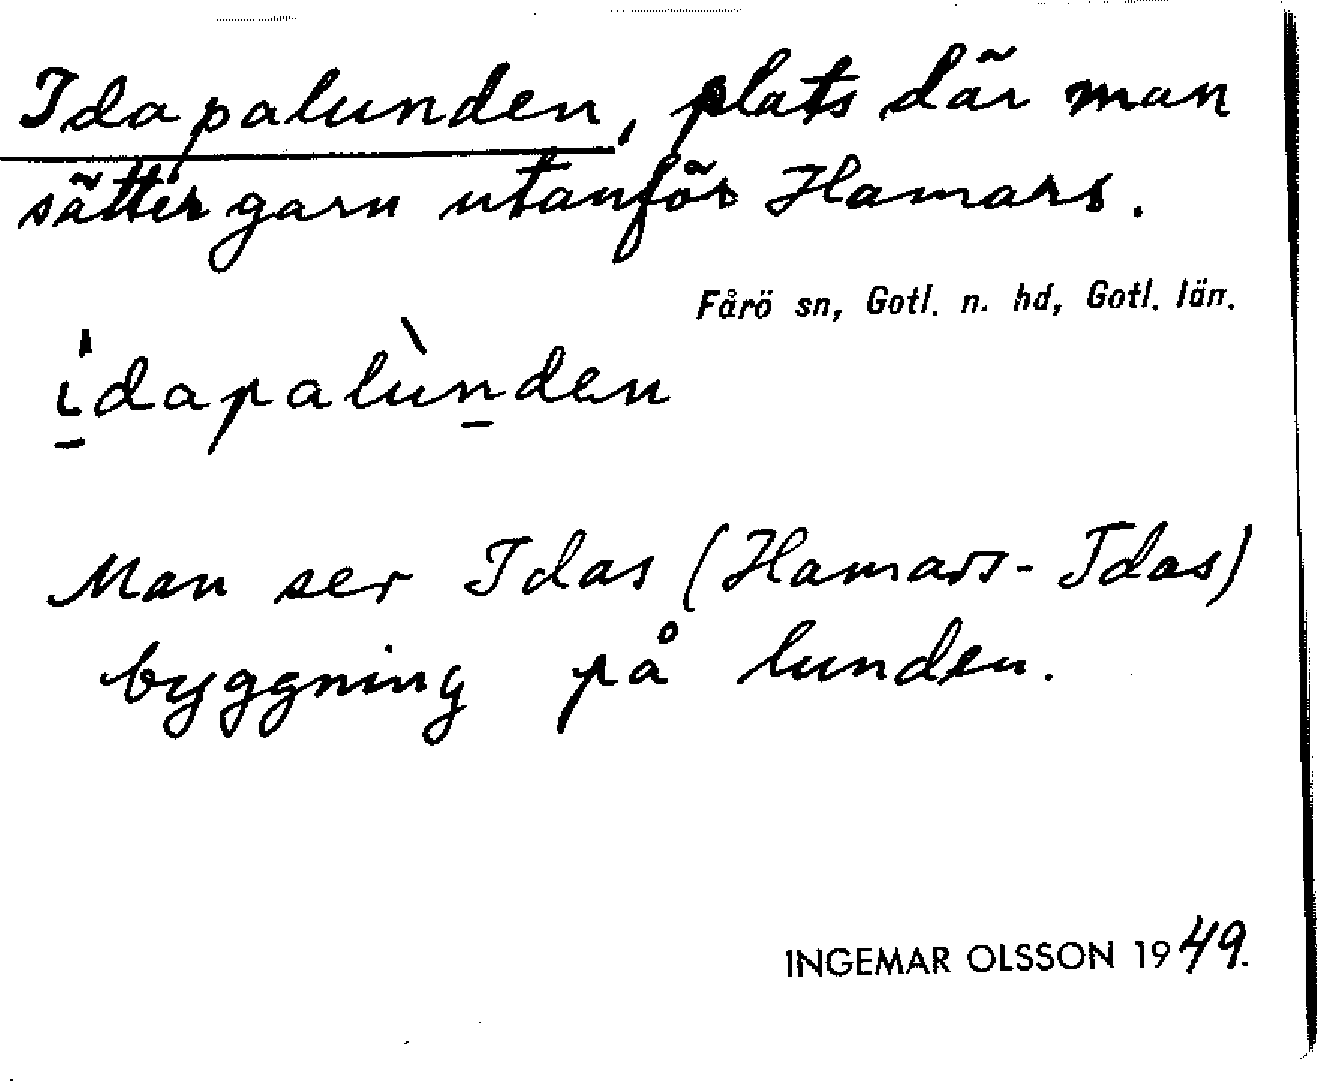 Idapalunden, plats där man
sätter garn utanför Hamars.
Fårö sn, Gotl. n. hd, Gotl. län.
í̱dapalùṉden
Man ser Idas (Hamars-Idas)
byggning på lunden.
INGEMAR OLSSON 1949.